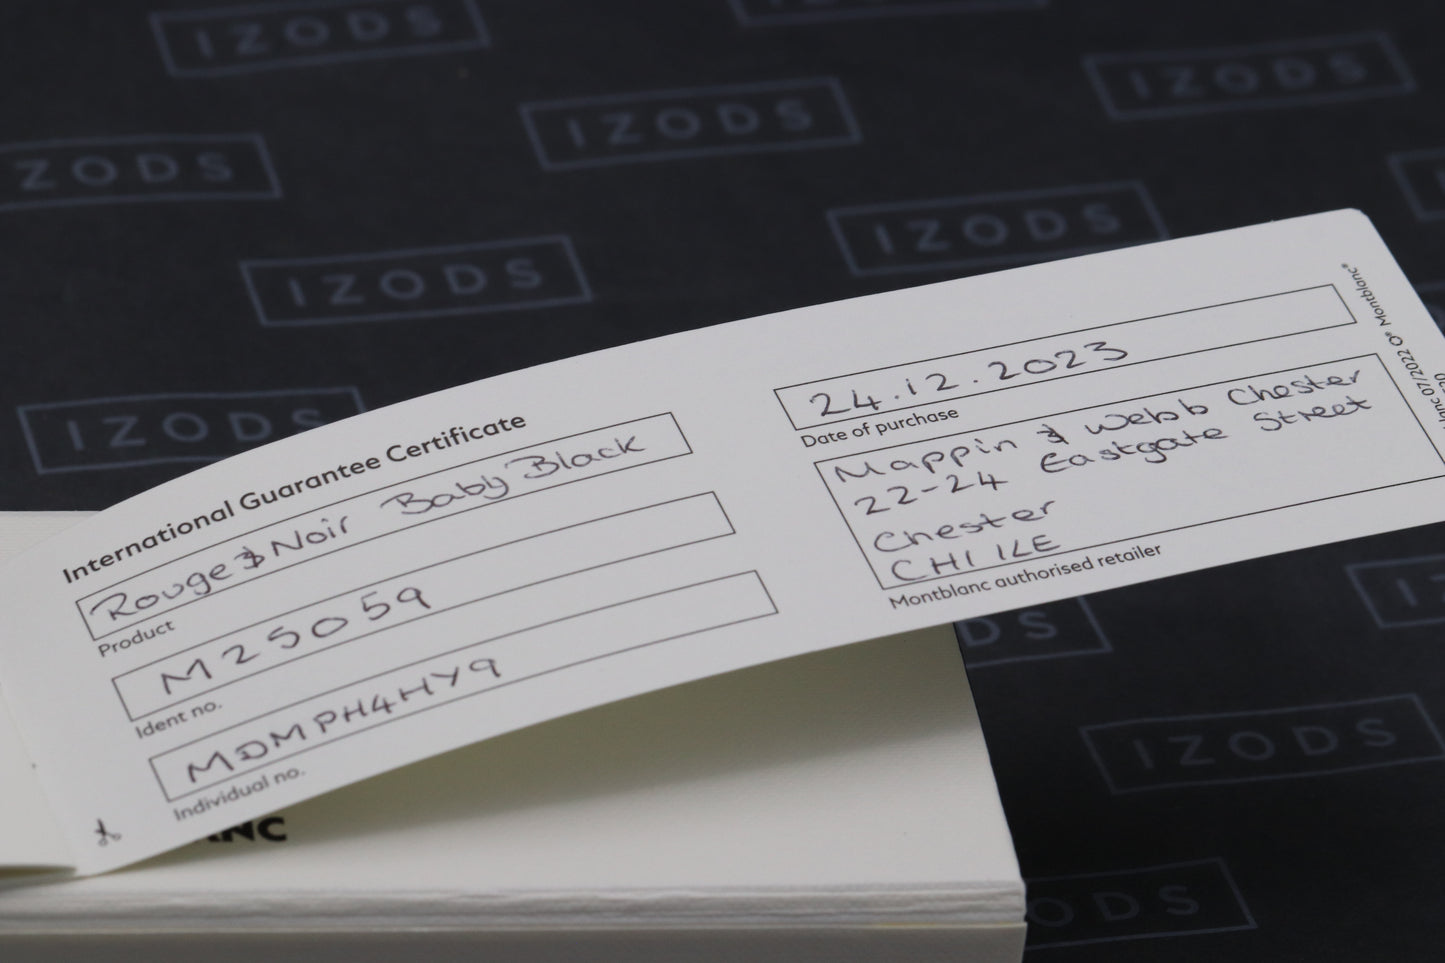 IZODS
IZODS
IZODS
ZODS
IZODS
IZODS
IZODS
International Guarantee Certificate
Rouge & Noir Baby Black
Product
M25059
Ident no.
MDMPH4HY9
Individual no.
24.12.2023
Date of purchase
Mappin & Webb Chester
22-24 Eastgate Street
Chester
CH1 1LE
Montblanc authorised retailer
07/2022 Montblanc®
DS
IZODS
ODS